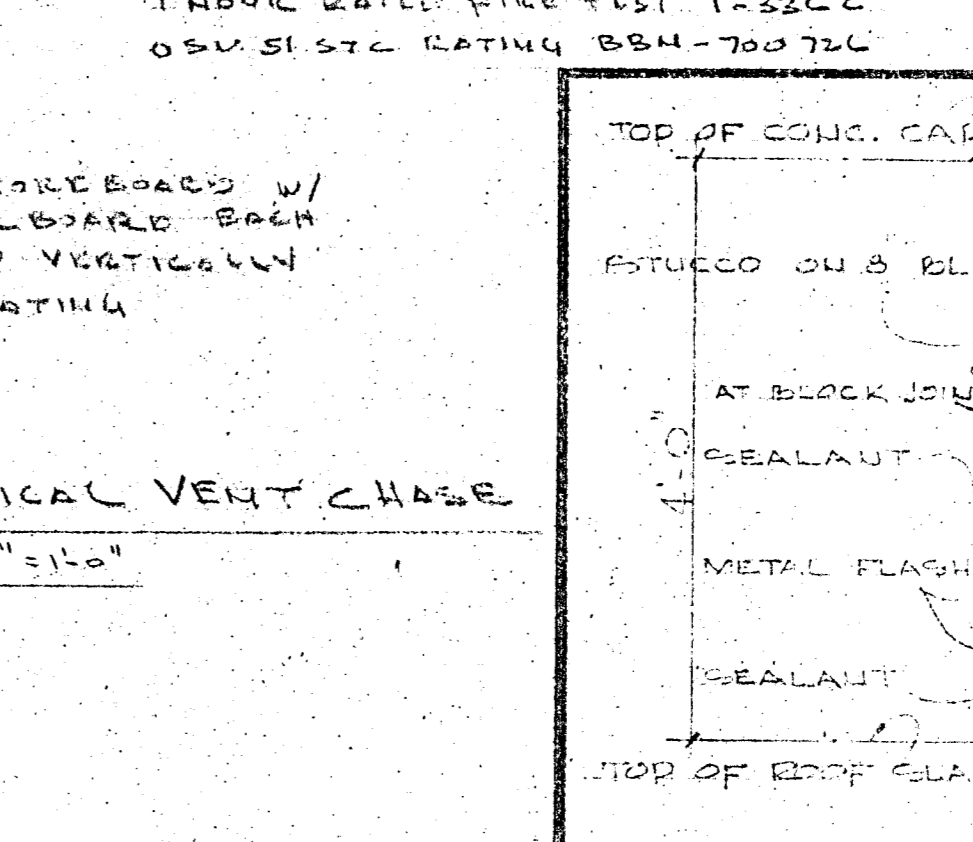 1 HOUR RATED FIRE TEST T-3366
51 STC RATING BBN-700726
COREBOARD W/
BOARD EACH
VERTICALLY
ATING
ICAL VENT CHASE
" = 1'-0"
TOP OF CONC. CAP
STUCCO ON 8 BL
AT BLOCK JOIN
4'-0"
SEALANT
METAL FLASH
SEALANT
TOP OF ROOF SLA